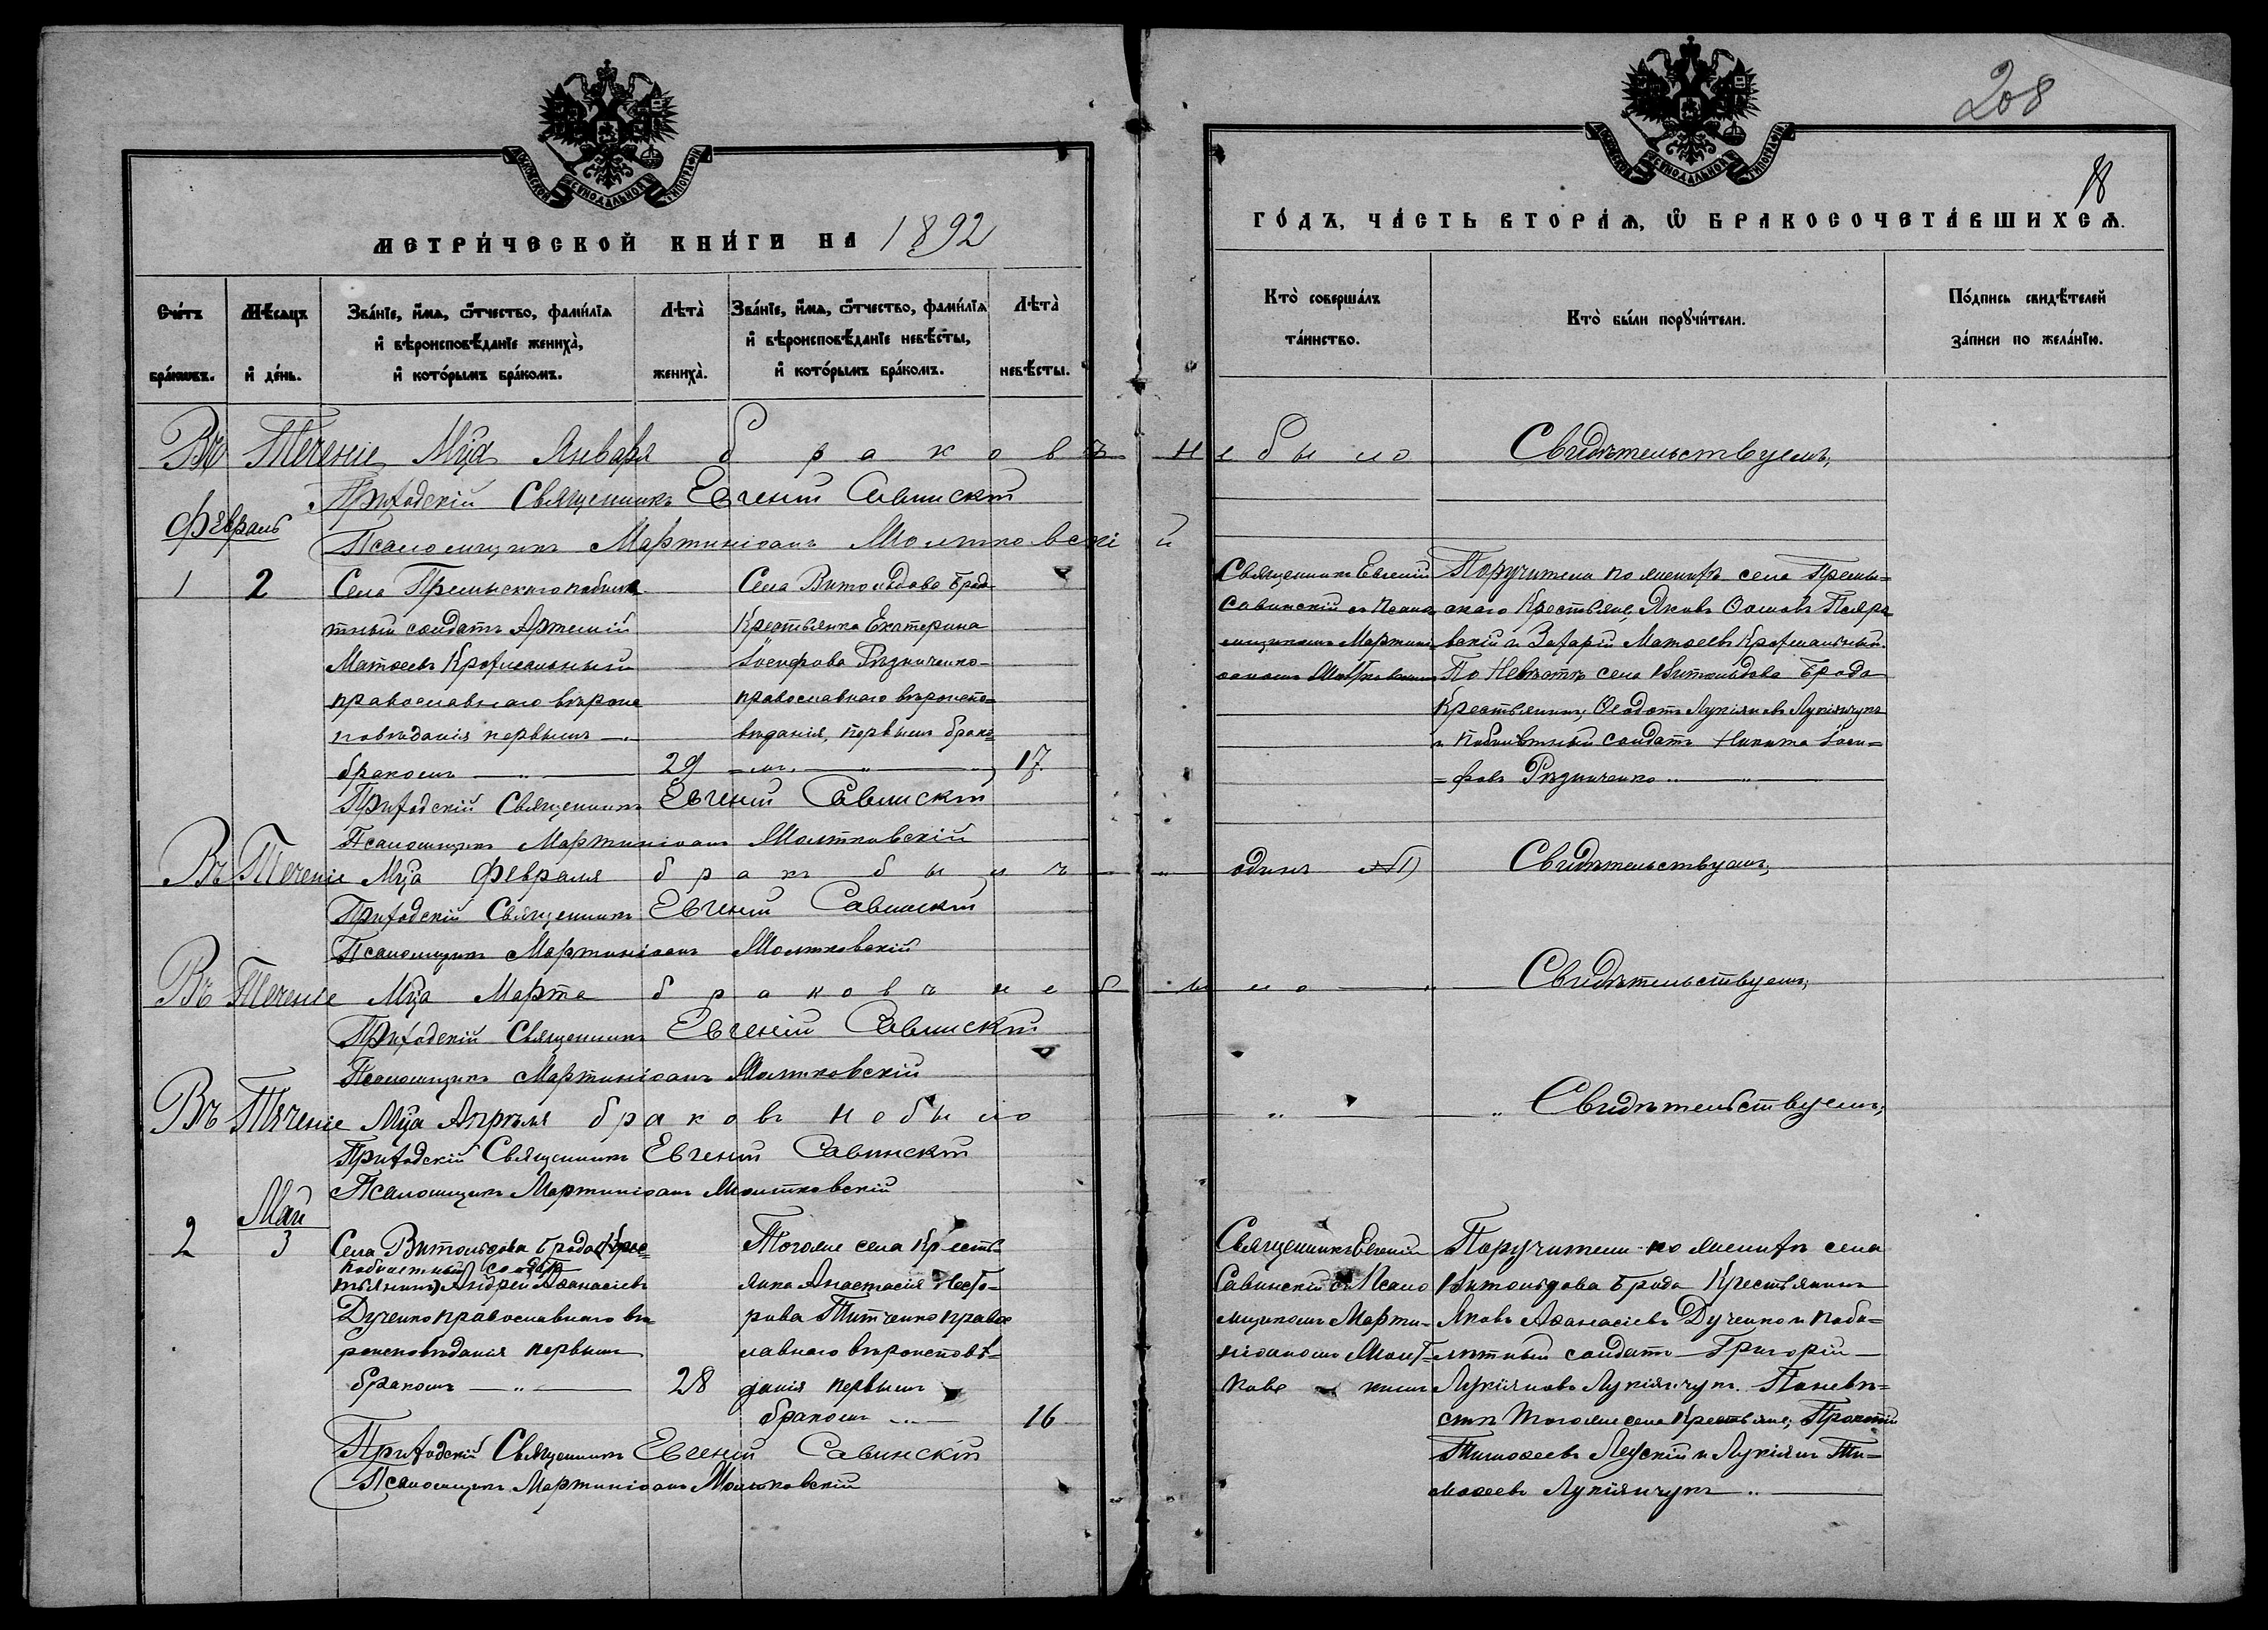 208
18
МОСКОВСКОЙ СѴНОДАЛЬНОЙ ТИПОГРАФІИ
МОСКОВСКОЙ СѴНОДАЛЬНОЙ ТИПОГРАФІИ
МЕТРИ́ЧЕСКОЙ КНИ́ГИ НА 1892
ГО́ДЪ, ЧА́СТЬ ВТОРА́Ѧ, Ѡ҆ БРАКОСОЧЕТА́ВШИХСѦ.
Сче́тъ бра́ковъ.
Мѣ́сяцъ и҆ де́нь.
Зва́нїе, и҆́мѧ, ѻ҆́тчество, фами́лїѧ
и҆ вѣроисповѣ́данїе жениха̀,
и҆ кото́рымъ бра́комъ.
Лѣта̀
жениха̀.
Зва́нїе, и҆́мѧ, ѻ҆́тчество, фами́лїѧ
и҆ вѣроисповѣ́данїе невѣ́сты,
и҆ кото́рымъ бра́комъ.
Лѣта̀
невѣ́сты.
Кто̀ соверша́лъ
та́инство.
Кто̀ бы́ли порꙋчи́тели.
По́дпись свидѣ́телей
за́писи по жела́нїю.
Въ Теченіе Мц̃а Января браковъ не было Свидѣтельствуемъ,
Приходскій Священникъ Евгеній Савинскій
Февраль
Псаломщикъ Мартиніанъ Молтковскій
1 2
Села Премыскаго
тный солдатъ Артемій
Матѳеевъ Крохмальный
православнаго вѣроис
повѣданія первымъ
бракомъ 29
Села Витольдова Брода
Крестьянка Екатерина
Іосифова Рѣзниченко
православнаго вѣроиспо=
вѣданія, первымъ брако=
мъ. 17.
Священникъ Евгеній
Савинскій съ Псало
мщикомъ Мартини
Поручители по женихѣ села Премы=
скаго Крестьяне, Яковъ
вскій и Захарій Матѳеевъ Крохмальный.
По Невѣстѣ села Витольдова Брода
Крестьянинъ, Ѳеодотъ Лукіяновъ Лукіянчукъ
и побилетный солдатъ Никита Іоси=
=фовъ Рѣзниченко
Приходскій Священникъ Евгеній Савинскій
Псаломщикъ Мартиніанъ Молтковскій
Въ Теченіе Мц̃а Февраля бракъ былъ одинъ №1) Свидѣтельствуемъ,
Приходскій Священникъ Евгеній Савинскій
Псаломщикъ Мартиніанъ Молтковскій
Въ Теченіе Мц̃а Марта браковъ не было Свидѣтельствуемъ,
Приходскій Священникъ Евгеній Савинскій
Псаломщикъ Мартиніанъ Молтковскій
Въ Теченіе Мц̃а Апрѣля браковъ небыло Свидѣтельствуемъ,
Приходскій Священникъ Евгеній Савинскій
Псаломщикъ Мартиніанъ Молтковскій
Май
2 3
Села Витольдова Брода (Крес=
побилетный солдатъ
тьянинъ) Андрей Аѳанасіевъ
Дученко православнаго вѣ=
роисповѣданія первымъ
бракомъ 28
Тогоже села Кресть=
янка Анастасія
рова Титченко право
славнаго вѣроисповѣ=
данія первымъ
бракомъ 16
Священникъ Евгеній
Савинскій съ Псало
мщикомъ Марти=
ніаномъ Молт=
ковс кимъ
Поручители по женихѣ села
Витольдова Брода Крестьянинъ
Яковъ Аѳанасіевъ Дученко и поби=
летный солдатъ Григорій
Лукіяновъ Лукіянчукъ. По невѣ=
стѣ тогоже села Крестьяне,
Тимоѳеевъ и Лукіянъ Ти=
моѳеевъ Лукіянчукъ
Приходскій Священникъ Евгеній Савинскій
Псаломщикъ Мартиніанъ Молтковскій